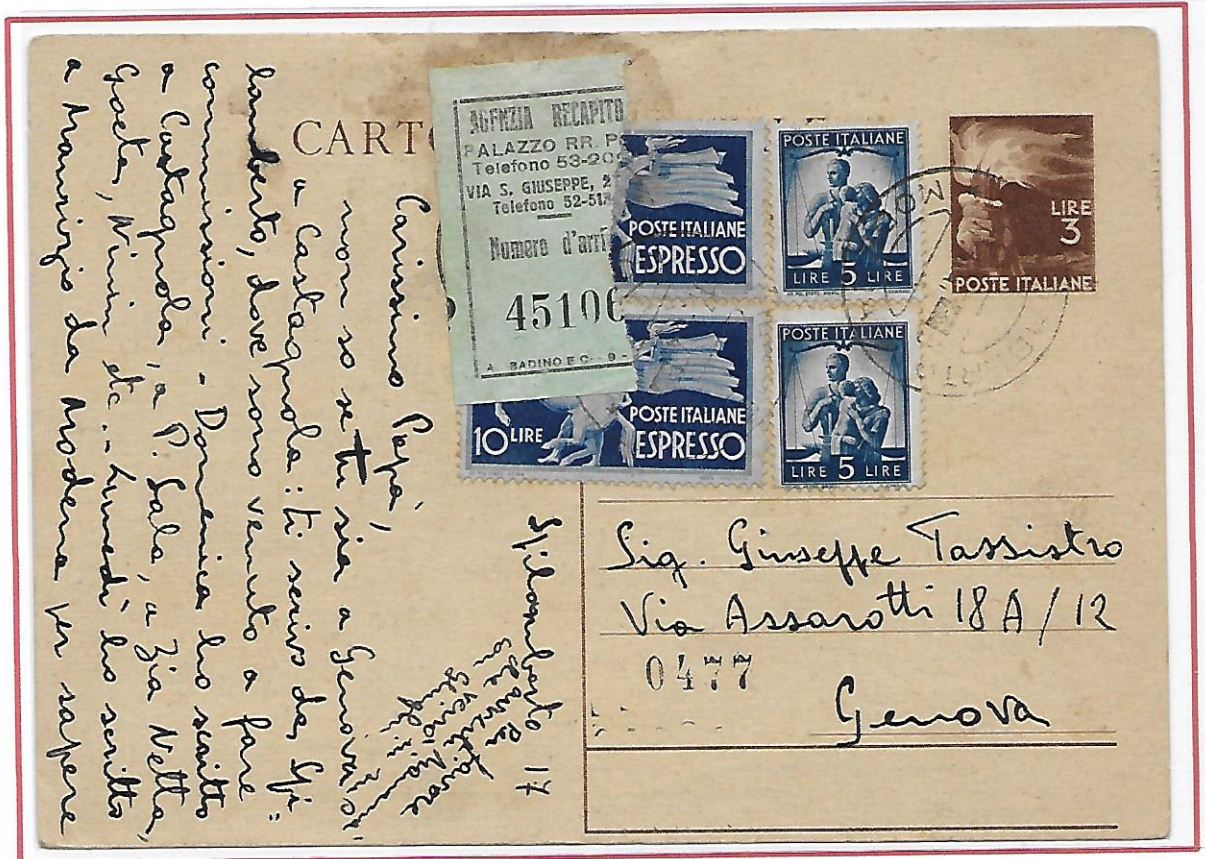 CARTO
AGENZIA RECAPITO
PALAZZO RR. P
Telefono 53-20
VIA S. GIUSEPPE, 2
Telefono 52-51
Numero d'arri
45106
A. BADINO E C. - 9 -
POSTE ITALIANE
ESPRESSO
POSTE ITALIANE
LIRE 5 LIRE
LIRE
3
POSTE ITALIANE
10 LIRE
POSTE ITALIANE
ESPRESSO
POSTE ITALIANE
LIRE 5 LIRE
Sig. Giuseppe Tassistro
Via Assarotti 18A/12
0477
Genova
Spilamberto 17
Carissimo Papà,
non so se tu sia a Genova o
a Castagnola: ti scrivo da Spi=
lamberto, dove sono venuto a fare
commissioni - Domenica ho scritto
a Castagnola, a P. Sala, a Zia Netta,
Gaeta, Ninin etc. - Lunedì ho scritto
a Maurizio da Modena per sapere